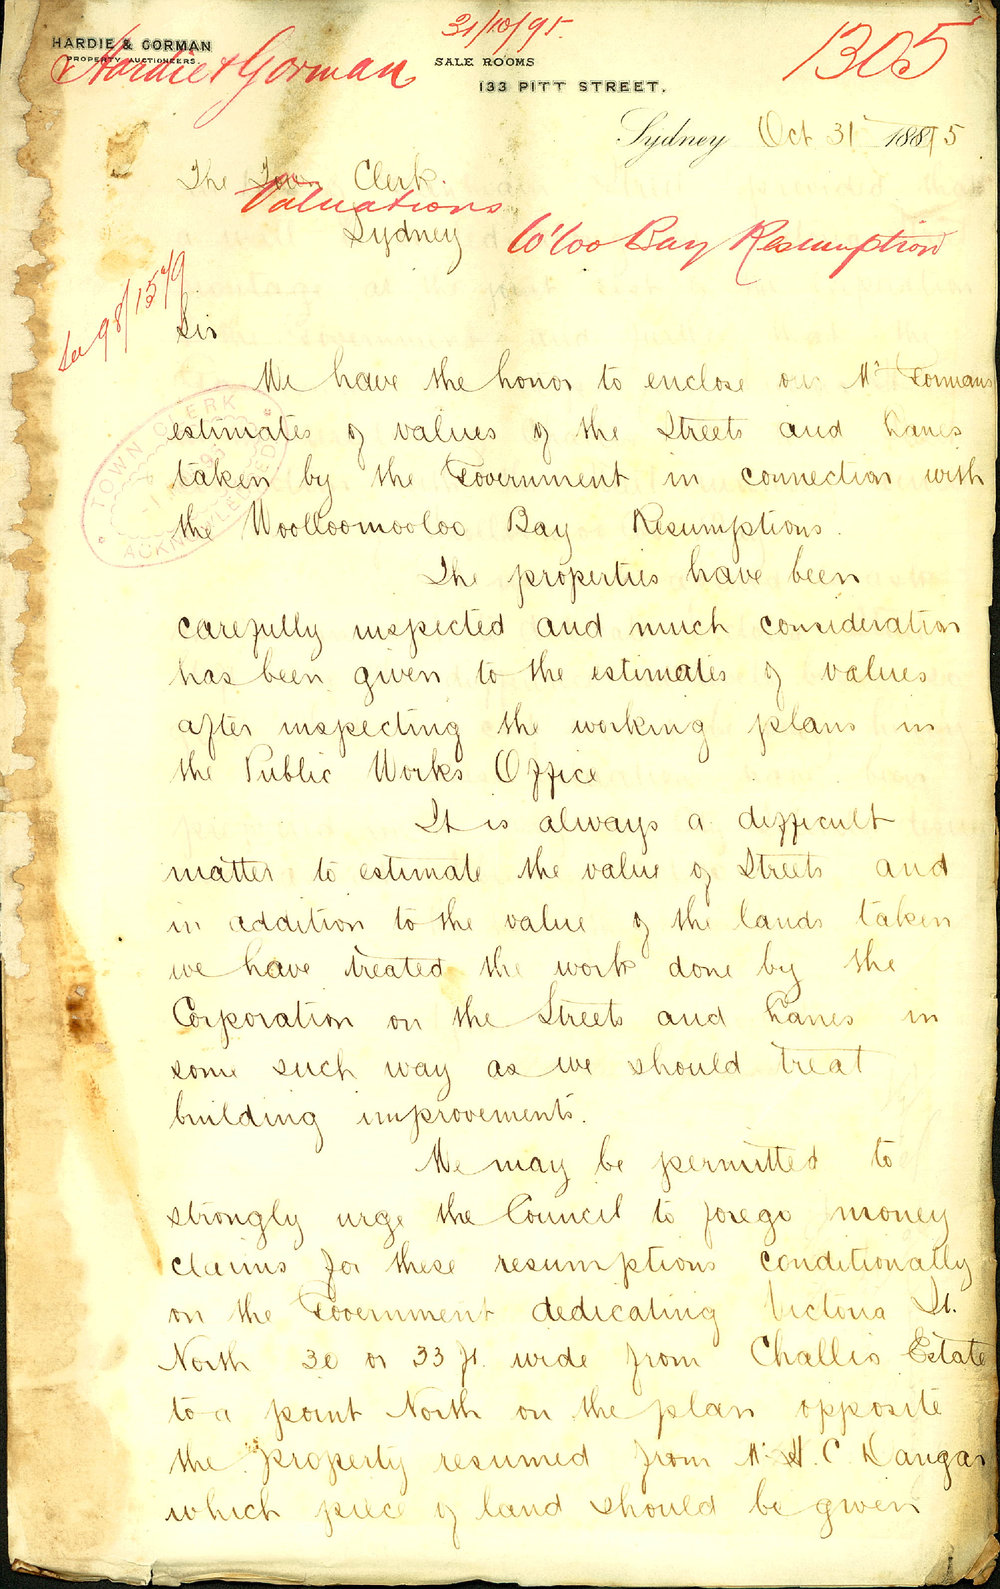 31/10/95.
1305
HARDIE & GORMAN
PROPERTY AUCTIONEERS.
Hardie & Gorman
SALE ROOMS
133 PITT STREET.
Sydney Oct 31 1895
The Town Clerk.
Valuations
Sydney
W'loo Bay Resumption
98/1579
Sir
TOWN CLERK
ACKNOWLEDGED
We have the honor to enclose our Mr Gormans
estimates of values of the Streets and Lanes
taken by the Government in connection with
the Woolloomooloo Bay Resumptions.
The properties have been
carefully inspected and much consideration
has been given to the estimates of values
after inspecting the working plans in
the Public Works Office
It is always a difficult
matter to estimate the value of Streets and
in addition to the value of the lands taken
we have treated the work done by the
Corporation on the Streets and Lanes in
some such way as we should treat
building improvements.
We may be permitted to
strongly urge the Council to forego money
claims for these resumptions conditionally
on the Government dedicating Victoria St.
North 30 or 33 ft. wide from Challis Estate
to a point North on the plan opposite
the property resumed from Mr H. C. Dangar
which piece of land should be given